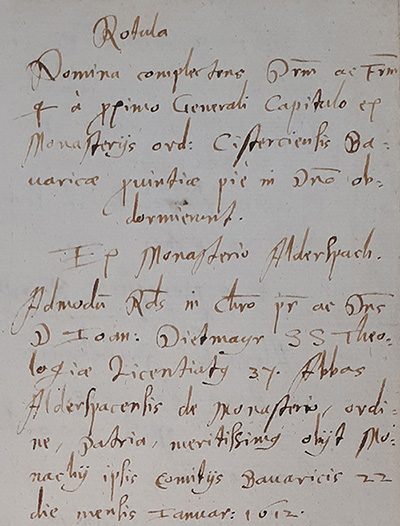 Rotula
Nomina complectens Drm̄ ac Frm̄
q̃ à pximo Generali Capitulo ex
Monasterijs ord: Cisterciensis Ba-
uaricæ puintiæ piè in Dn̄o ob-
dormierunt.
Ex Monasterio Alderspach.
Admodū Rds in Chro pr ac Dn̄s
D Ioan: Dietmayr SS Theo-
logiæ Licentiatq 37. Abbas
Alderspacensis de Monasterio, ordi-
ne, patria, meritissimq obijt Mo-
nachij ipsis comitijs Bauaricis 22
die mensis Ianuar: 1612.